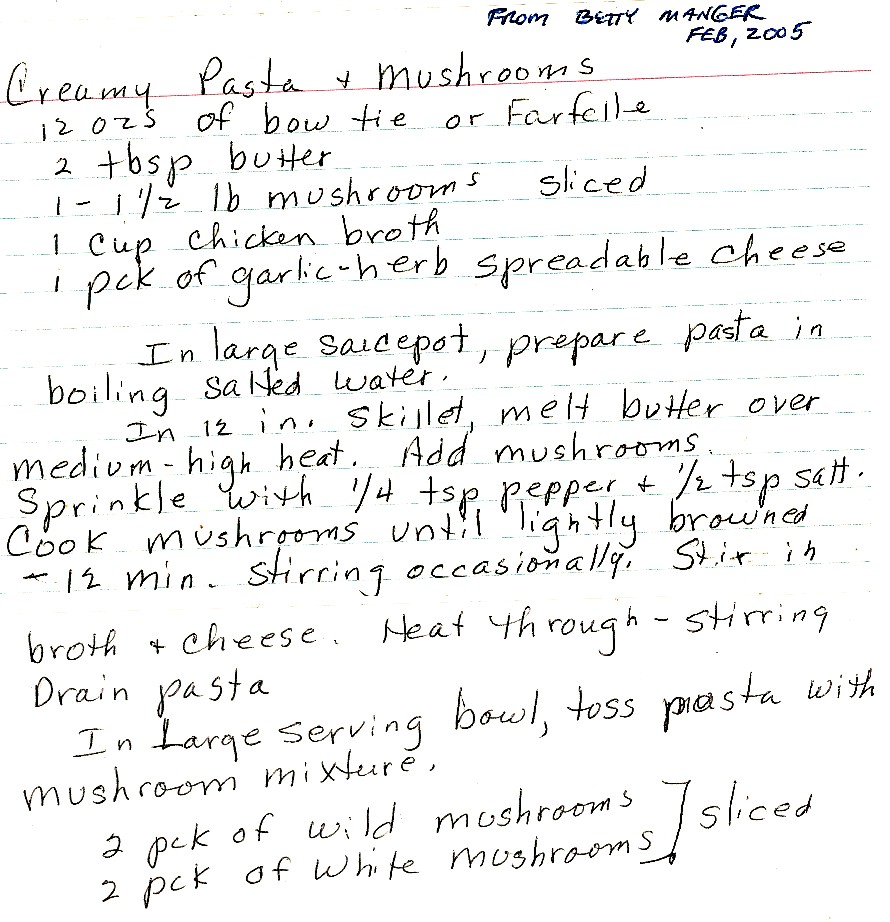 FROM BETTY MANGER
FEB, 2005
Creamy Pasta + Mushrooms
12 ozs of bow tie or Farfelle
2 tbsp butter
1 - 1 1/2 lb mushrooms sliced
1 cup chicken broth
1 pck of garlic-herb spreadable cheese
In large saucepot, prepare pasta in
boiling salted water.
In 12 in. skillet, melt butter over
medium-high heat. Add mushrooms.
Sprinkle with 1/4 tsp pepper + 1/2 tsp salt.
Cook mushrooms until lightly browned
- 12 min. stirring occasionally. Stir in
broth + cheese. Heat through - stirring
Drain pasta
In Large serving bowl, toss pasta with
mushroom mixture.
2 pck of wild mushrooms ] sliced
2 pck of White mushrooms